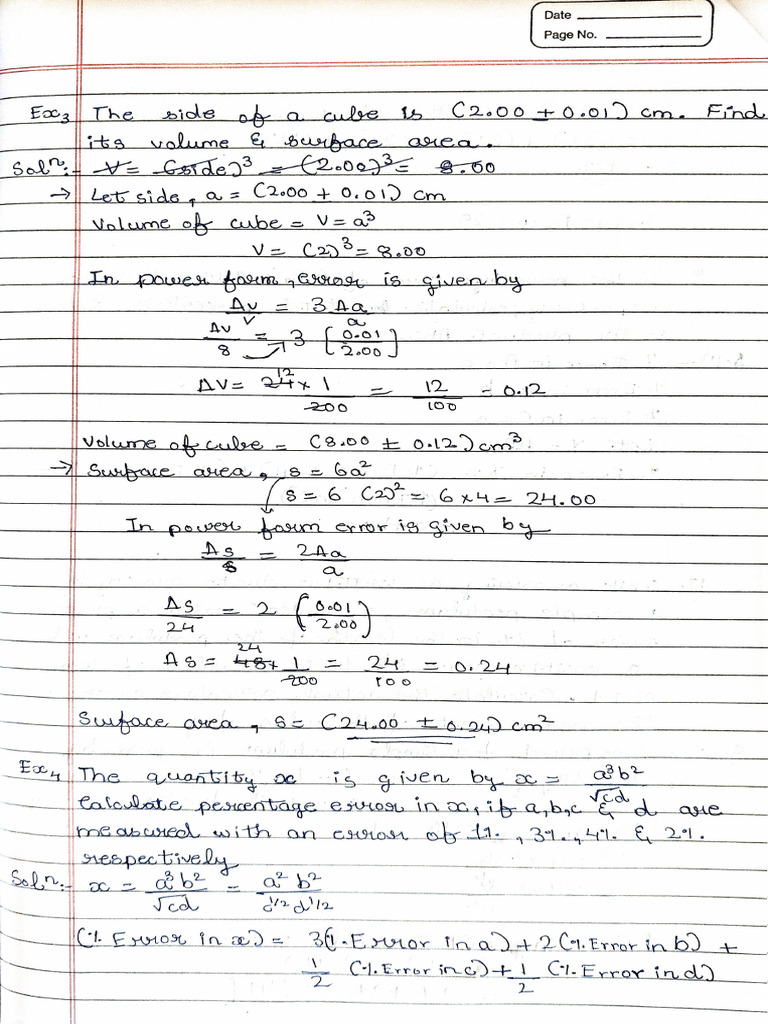 Date
Page No.
Ex3 The side of a cube is (2.00 ± 0.01) cm. Find
its volume & surface area.
Solⁿ:- V = (side)³ = (2.00)³ = 8.00
→ Let side, a = (2.00 ± 0.01) cm
Volume of cube = V = a³
V = (2)³ = 8.00
In power form, error is given by
Δv/v = 3Δa/a
Δv/8 = 3 [0.01/2.00]
ΔV = 24 12 × 1/200 = 12/100 = 0.12
Volume of cube = (8.00 ± 0.12) cm³.
→ Surface area, s = 6a²
s = 6 (2)² = 6 × 4 = 24.00
In power form error is given by
Δs/s = 2Δa/a
Δs/24 = 2 (0.01/2.00)
Δs = 48 24 × 1/200 = 24/100 = 0.24
Surface area, s = (24.00 ± 0.24) cm²
Ex4 The quantity x is given by x = a³b²/√cd
Calculate percentage error in x, if a, b, c & d are
measured with an error of 1%, 3%, 4% & 2%.
respectively
Solⁿ:- x = a³b²/√cd = a² b²/c^1/2 d^1/2
(% Error in x) = 3(%.Error in a) + 2 (%.Error in b) +
1/2 (%.Error in c) + 1/2 (%.Error in d)